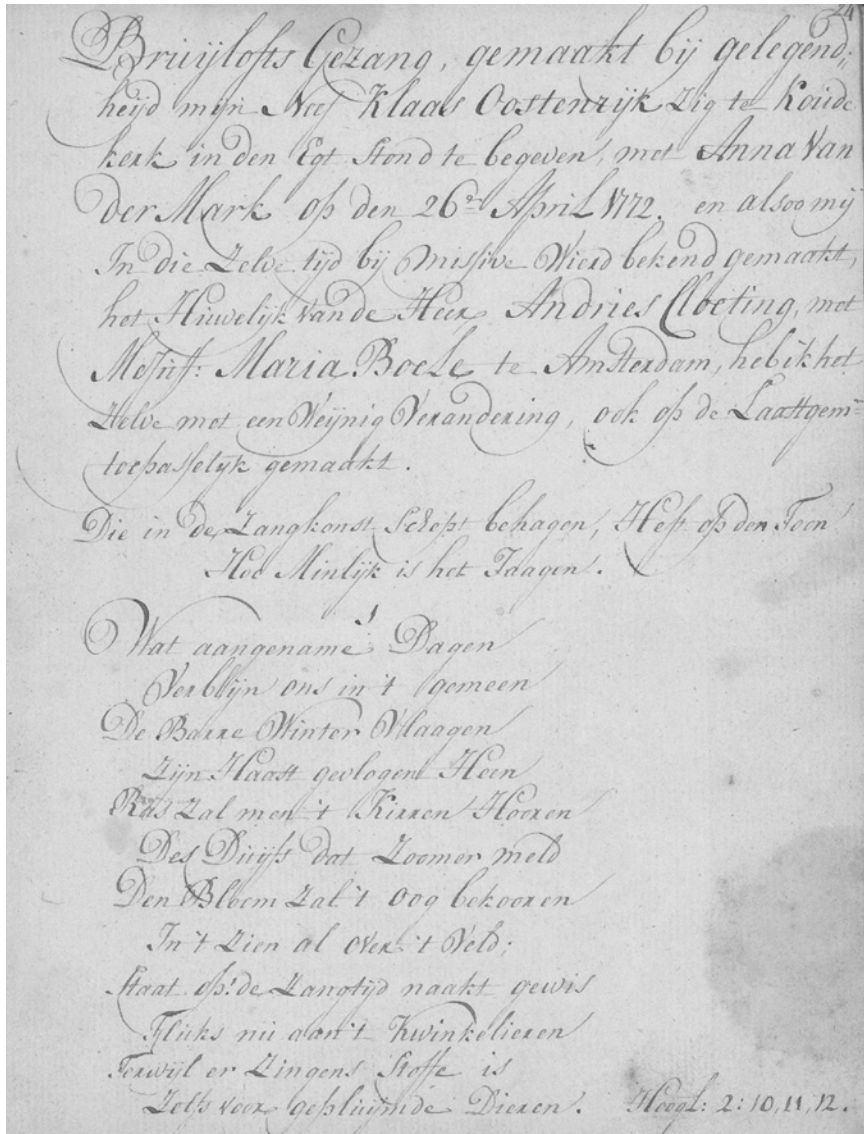 24
Bruijlofts Gezang, gemaakt bij gelegend,,
heijd mijn Neef Klaas Oostenrijk Zig te Koude
kerk in den Egt Stond te begeven, met Anna Van
der Mark op den 26en April 1772. en alsoo mij
In die Zelve tijd bij Missive Wierd bekend gemaakt,
het Huwelijk van de Heer Andries Cloeting, met
Mejuff: Maria Boele te Amsterdam, heb ik het
Zelve met een Weijnig Verandering, ook op de Laattgemn
toepasselijk gemaakt.
Die in de Zangkonst Schept behagen, Heft op den Toon
Hoe Minlijk is het Jaagen.
1
Wat aangename Dagen
Verblijn ons in 't gemeen
De Barre Winter Vlaagen
Zijn Haast gevlogen Heen
Ras Zal men 't Kirren Hooren
Des Duijfs dat Zoomer meld
Den Bloem Zal 't oog bekooren
In 't Zien al over 't Veld;
Staat op! de Zangtijd naakt gewis
Fluks nu aan 't Kwinkelieren
Terwijl er Zingens Stoffe is
Zelfs voor gepluijmde Dieren. Hoogl: 2: 10, 11, 12.